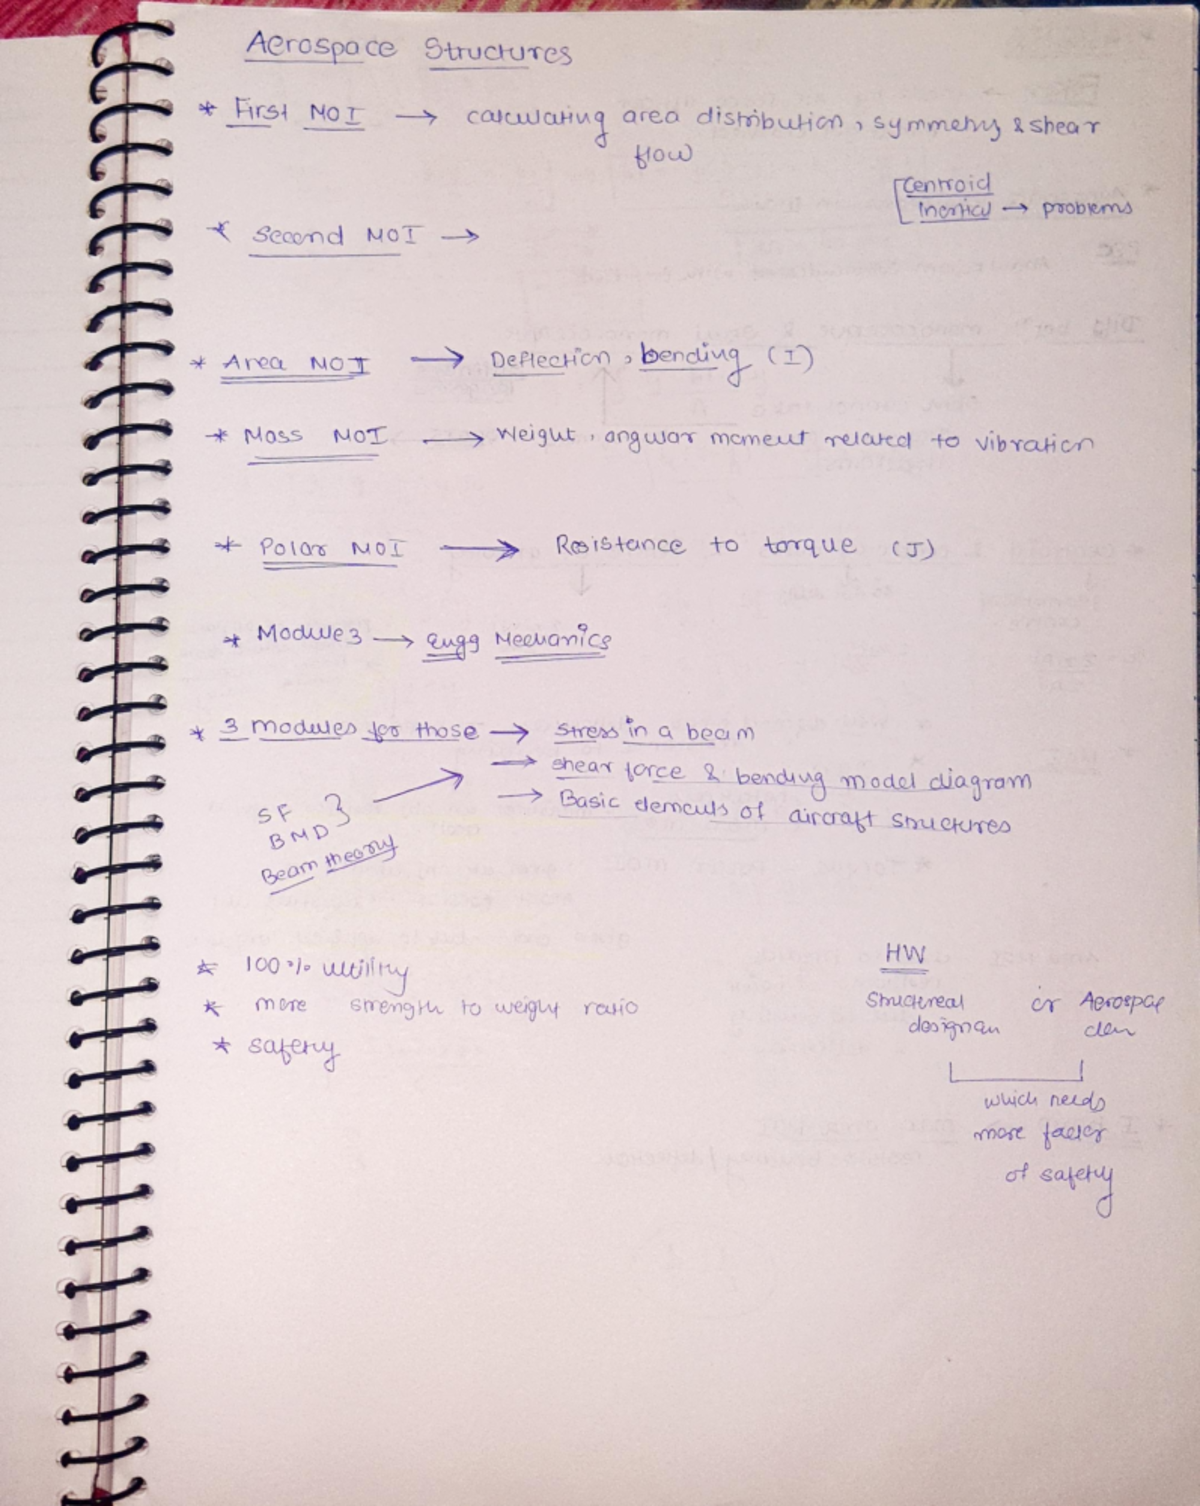 Aerospace Structures
* First MOI → calculating area distribution, symmetry & shear
flow
Centroid
Inertia → problems
* Second MOI →
* Area MOI → Deflection, bending (I)
* Mass MOI → Weight, angular moment related to vibration
* Polar MOI → Resistance to torque (J)
* Module 3 → Engg Mechanics
* 3 modules for those → Stress in a beam
→ shear force & bending model diagram
→ Basic elements of aircraft structures
SF
BMD }
Beam theory
* 100% utility
* more strength to weight ratio
* safety
HW
Structural or Aerospace
designan
which needs
more factor
of safety